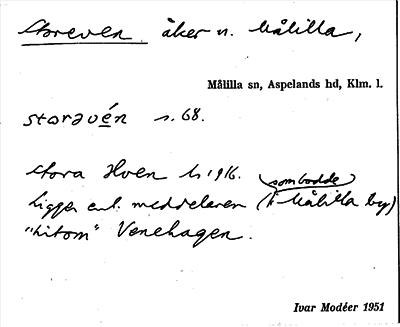 Storeven åker n. Målilla,
Målilla sn, Aspelands hd, Klm. l.
storəvén s. 68.
Stora Hven 1916.
som bodde
ligger enl. meddelaren (i Målilla by)
"hitom" Venehagen.
Ivar Modéer 1951